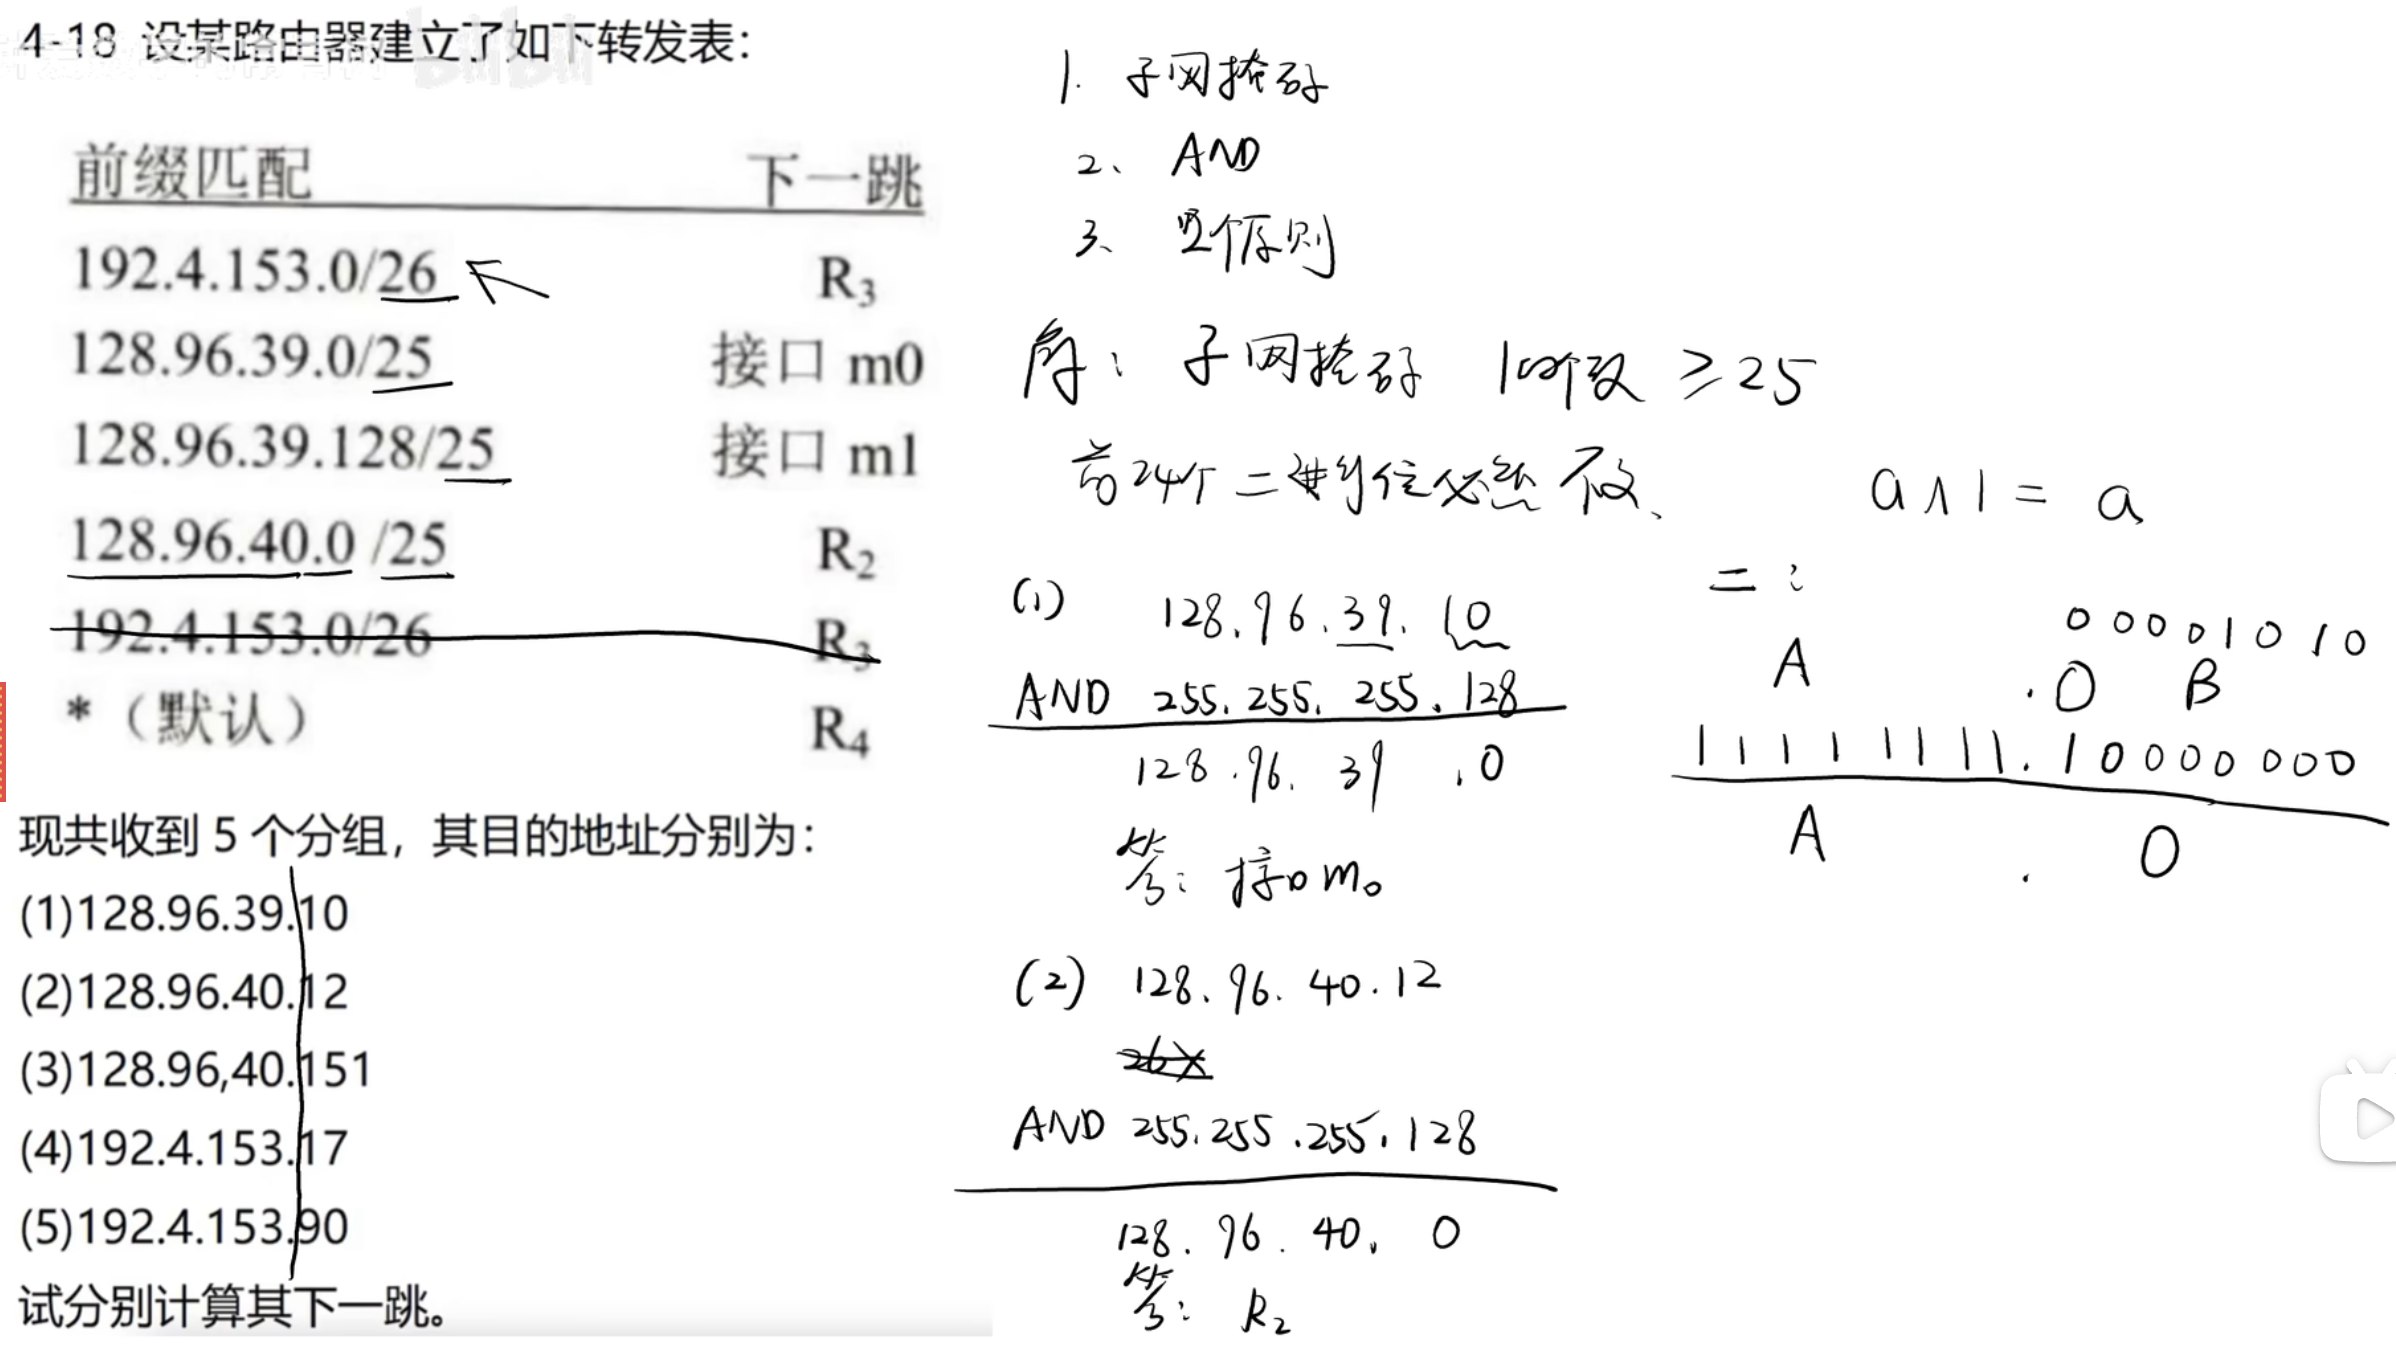 4-18 设某路由器建立了如下转发表：
前缀匹配 下一跳
192.4.153.0/26 R₃
128.96.39.0/25 接口 m0
128.96.39.128/25 接口 m1
128.96.40.0 /25 R₂
192.4.153.0/26 R₃
*（默认） R₄
现共收到 5 个分组，其目的地址分别为：
(1)128.96.39.10
(2)128.96.40.12
(3)128.96,40.151
(4)192.4.153.17
(5)192.4.153.90
试分别计算其下一跳。
1. 子网掩码
2、 AND
3、 原则
子网掩码 1的个数 ≥25
前24个二进制位必然不改、
a∧1 = a
(1) 128.96.39.10
AND 255.255.255.128
128.96.39.0
答：接口m₀
二：
00001010
A .0 B
11111111.10000000
A . 0
(2) 128.96.40.12
26X
AND 255.255.255.128
128.96.40.0
答：R₂